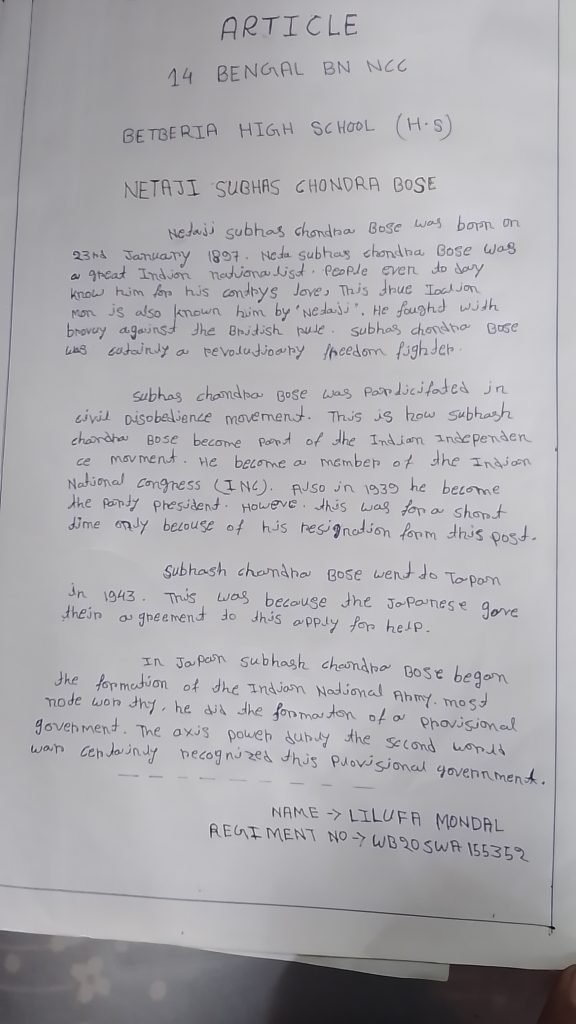 ARTICLE
14 BENGAL BN NCC
BETBERIA HIGH SCHOOL (H.S)
NETAJI SUBHAS CHONDRA BOSE
Netaji subhas chondra Bose was born on
23rd January 1897. Neta subhas chondra Bose was
a great Indion nationalist. People even to day
know him for his contrys love, This true Indion
mon is also known him by 'Netaji'. He fought with
bravuy against the British rule. subhas chondra Bose
was catainly a revolutioany freedom fighter.
subhas chandra Bose was Pardicifated in
civil Disobedience movement. This is how subhash
chandra Bose become part of the Indian Independen
ce movment. He become a member of the Indian
National congress (INC). Also in 1939 he become
the party president. Howeve. this was for a short
time only becouse of his resignation form this post.
Subhash chandra Bose went to Japan
in 1943. This was because the Japanese gave
their agreement to this apply for help.
In Japan subhash chandra Bose began
the formation of the Indian National Army. most
node wor thy, he did the formaton of a provisional
goverment. The axis power the second world
war certainly recognized this provisional government.
NAME → LILUFA MONDAL
REGIMENT NO → WB20SWA155352